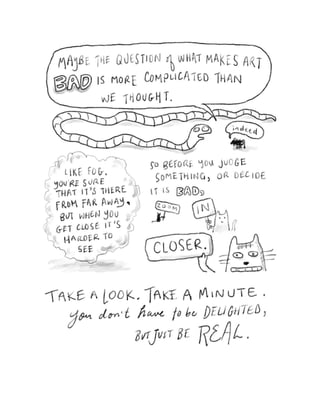 MAYBE THE QUESTION of WHAT MAKES ART
BAD IS MORE COMPLICATED THAN
WE THOUGHT.
indeed
LIKE FOG.
YOU'RE SURE
THAT IT'S THERE
FROM FAR AWAY,
BUT WHEN YOU
GET CLOSE IT'S
HARDER TO
SEE
SO BEFORE YOU JUDGE
SOMETHING, OR DECIDE
IT IS BAD,
ZOOM
IN
CLOSER.
TAKE A LOOK. TAKE A MINUTE.
you don't have to be DELIGHTED,
BUT JUST BE REAL.